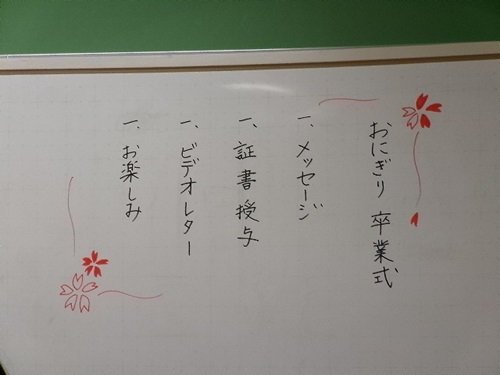 おにぎり 卒業式
一、メッセージ
一、証書授与
一、ビデオレター
一、お楽しみ